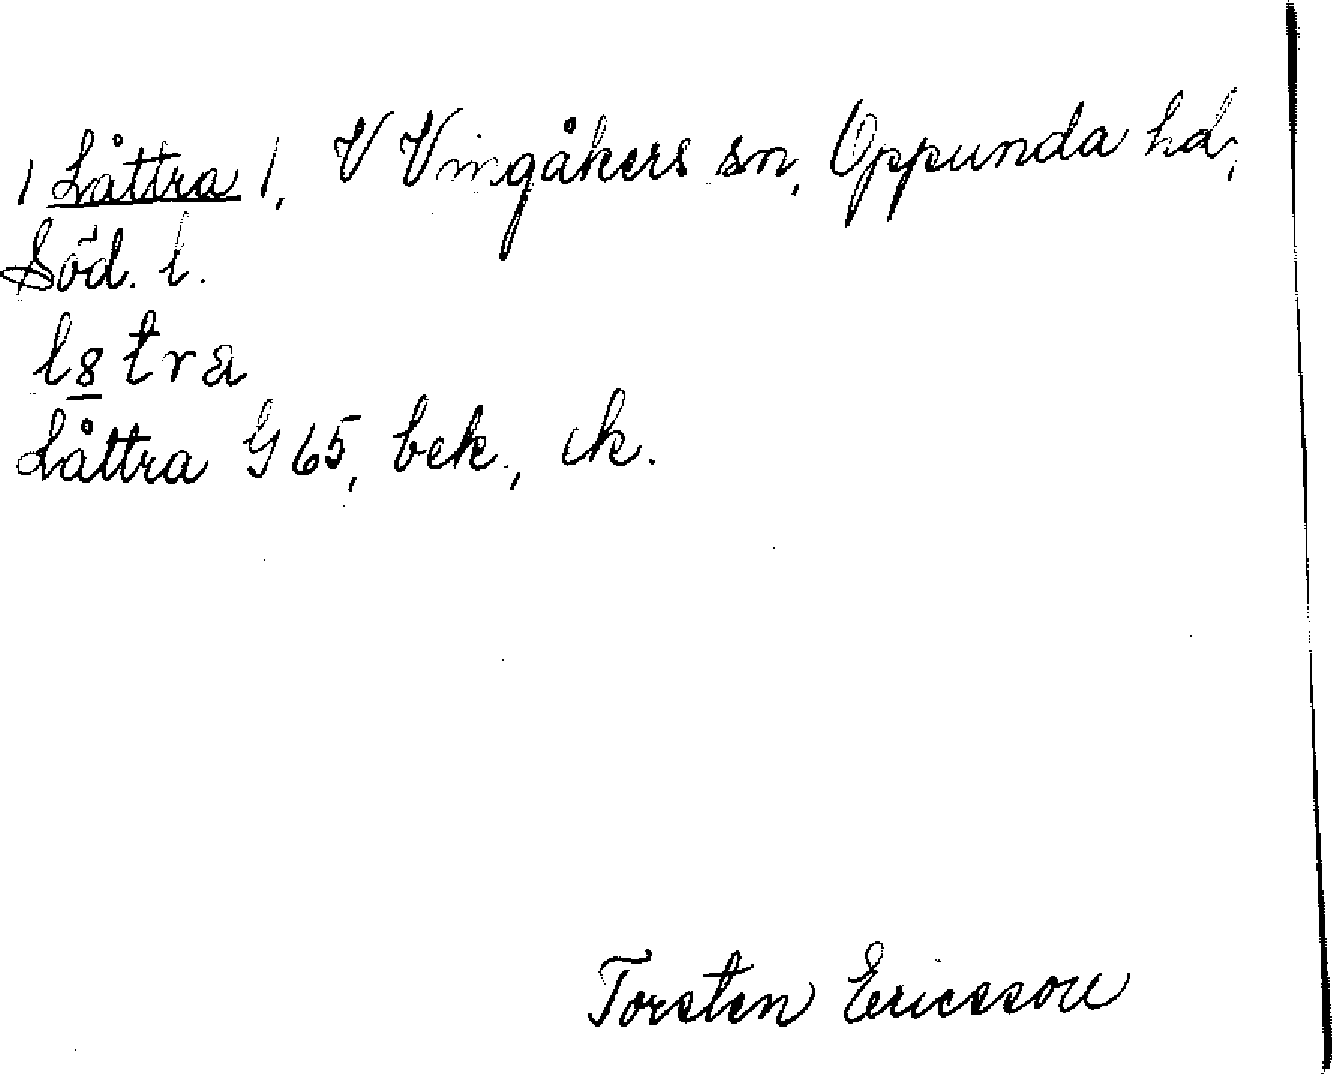 / Låttra /, V Vingåkers sn, Oppunda hd,
Söd. l.
l8tra
Låttra G 65, bek., ck.
Torsten Ericsson